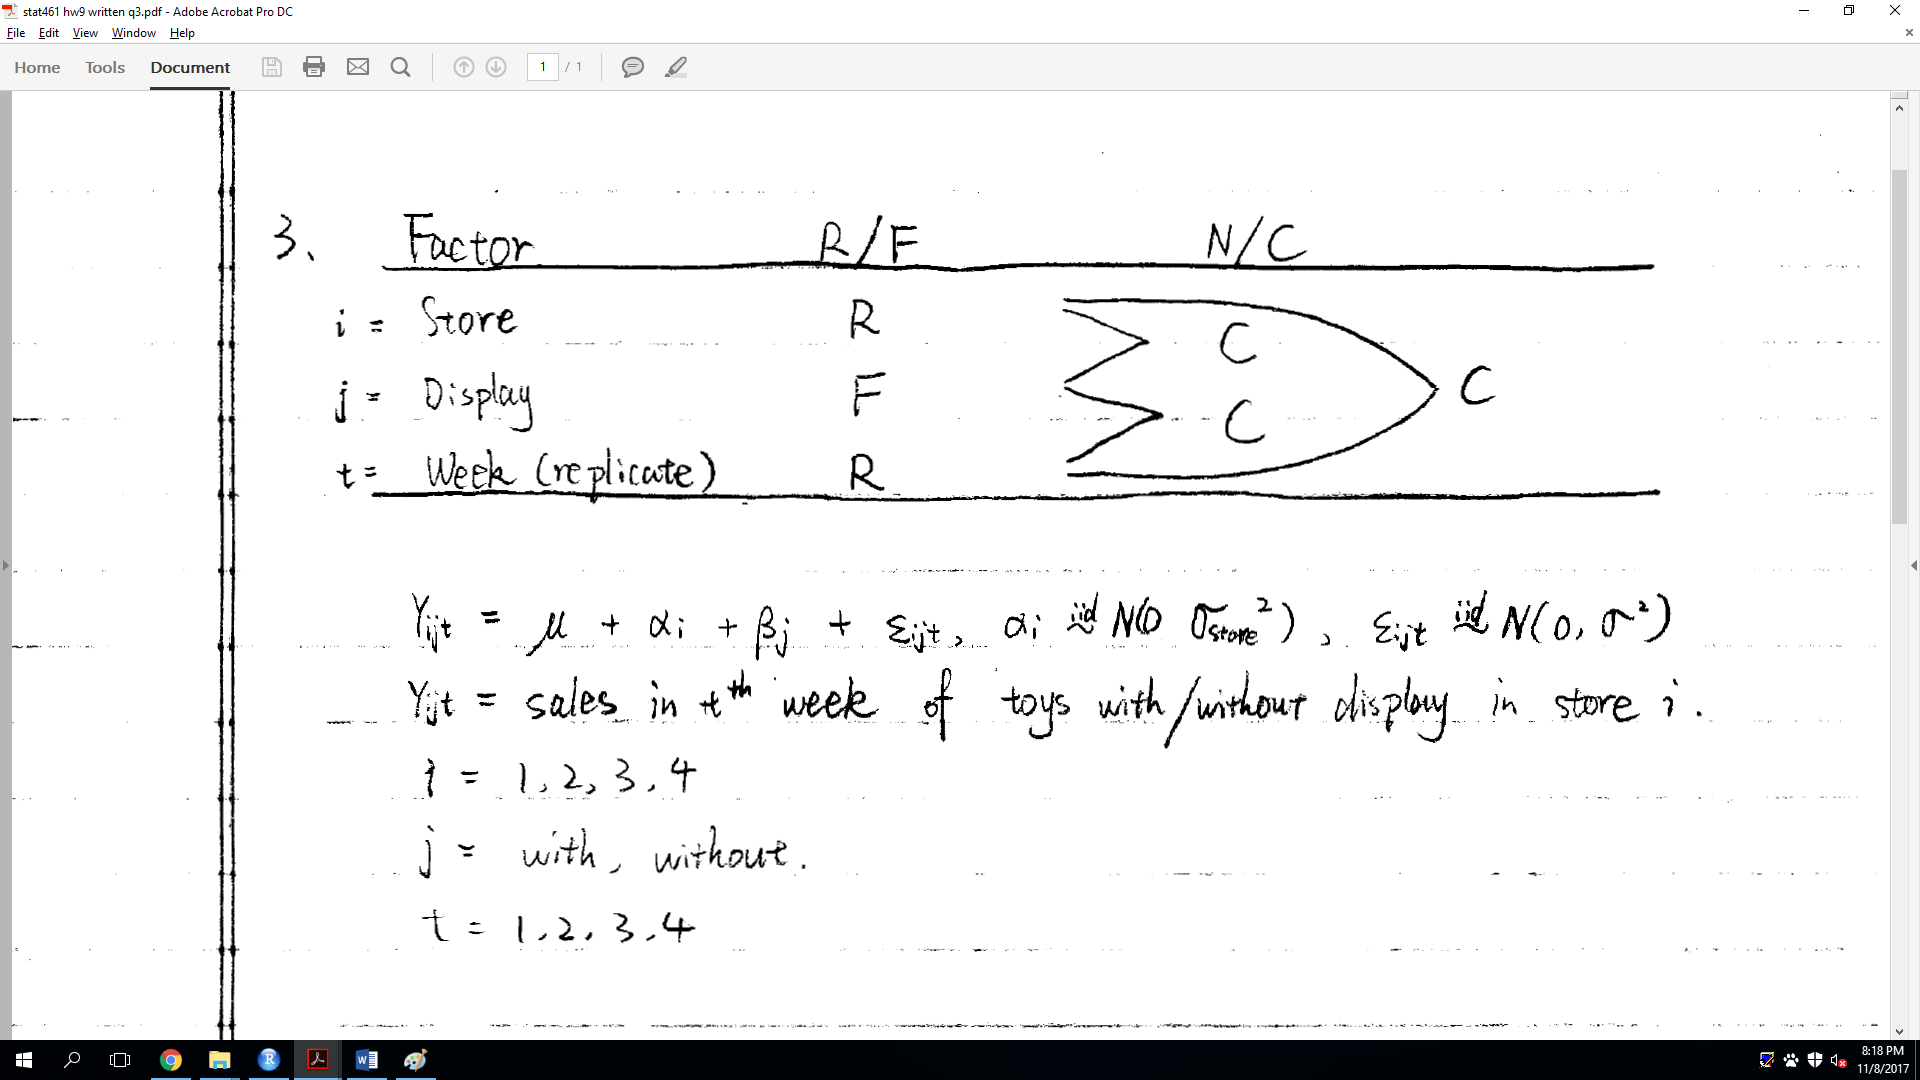 stat461 hw9 written q3.pdf - Adobe Acrobat Pro DC
File Edit View Window Help
Home Tools Document 1 / 1
3. Factor R/F N/C
i = Store R C
j = Display F C C
t = Week (replicate) R
Yijt = μ + αi + βj + εijt, αi iid~ N(0 σstore²), εijt iid~ N(0, σ²)
Yijt = sales in tth week of toys with/without display in store i.
i = 1, 2, 3, 4
j = with, without.
t = 1, 2, 3, 4
8:18 PM
11/8/2017